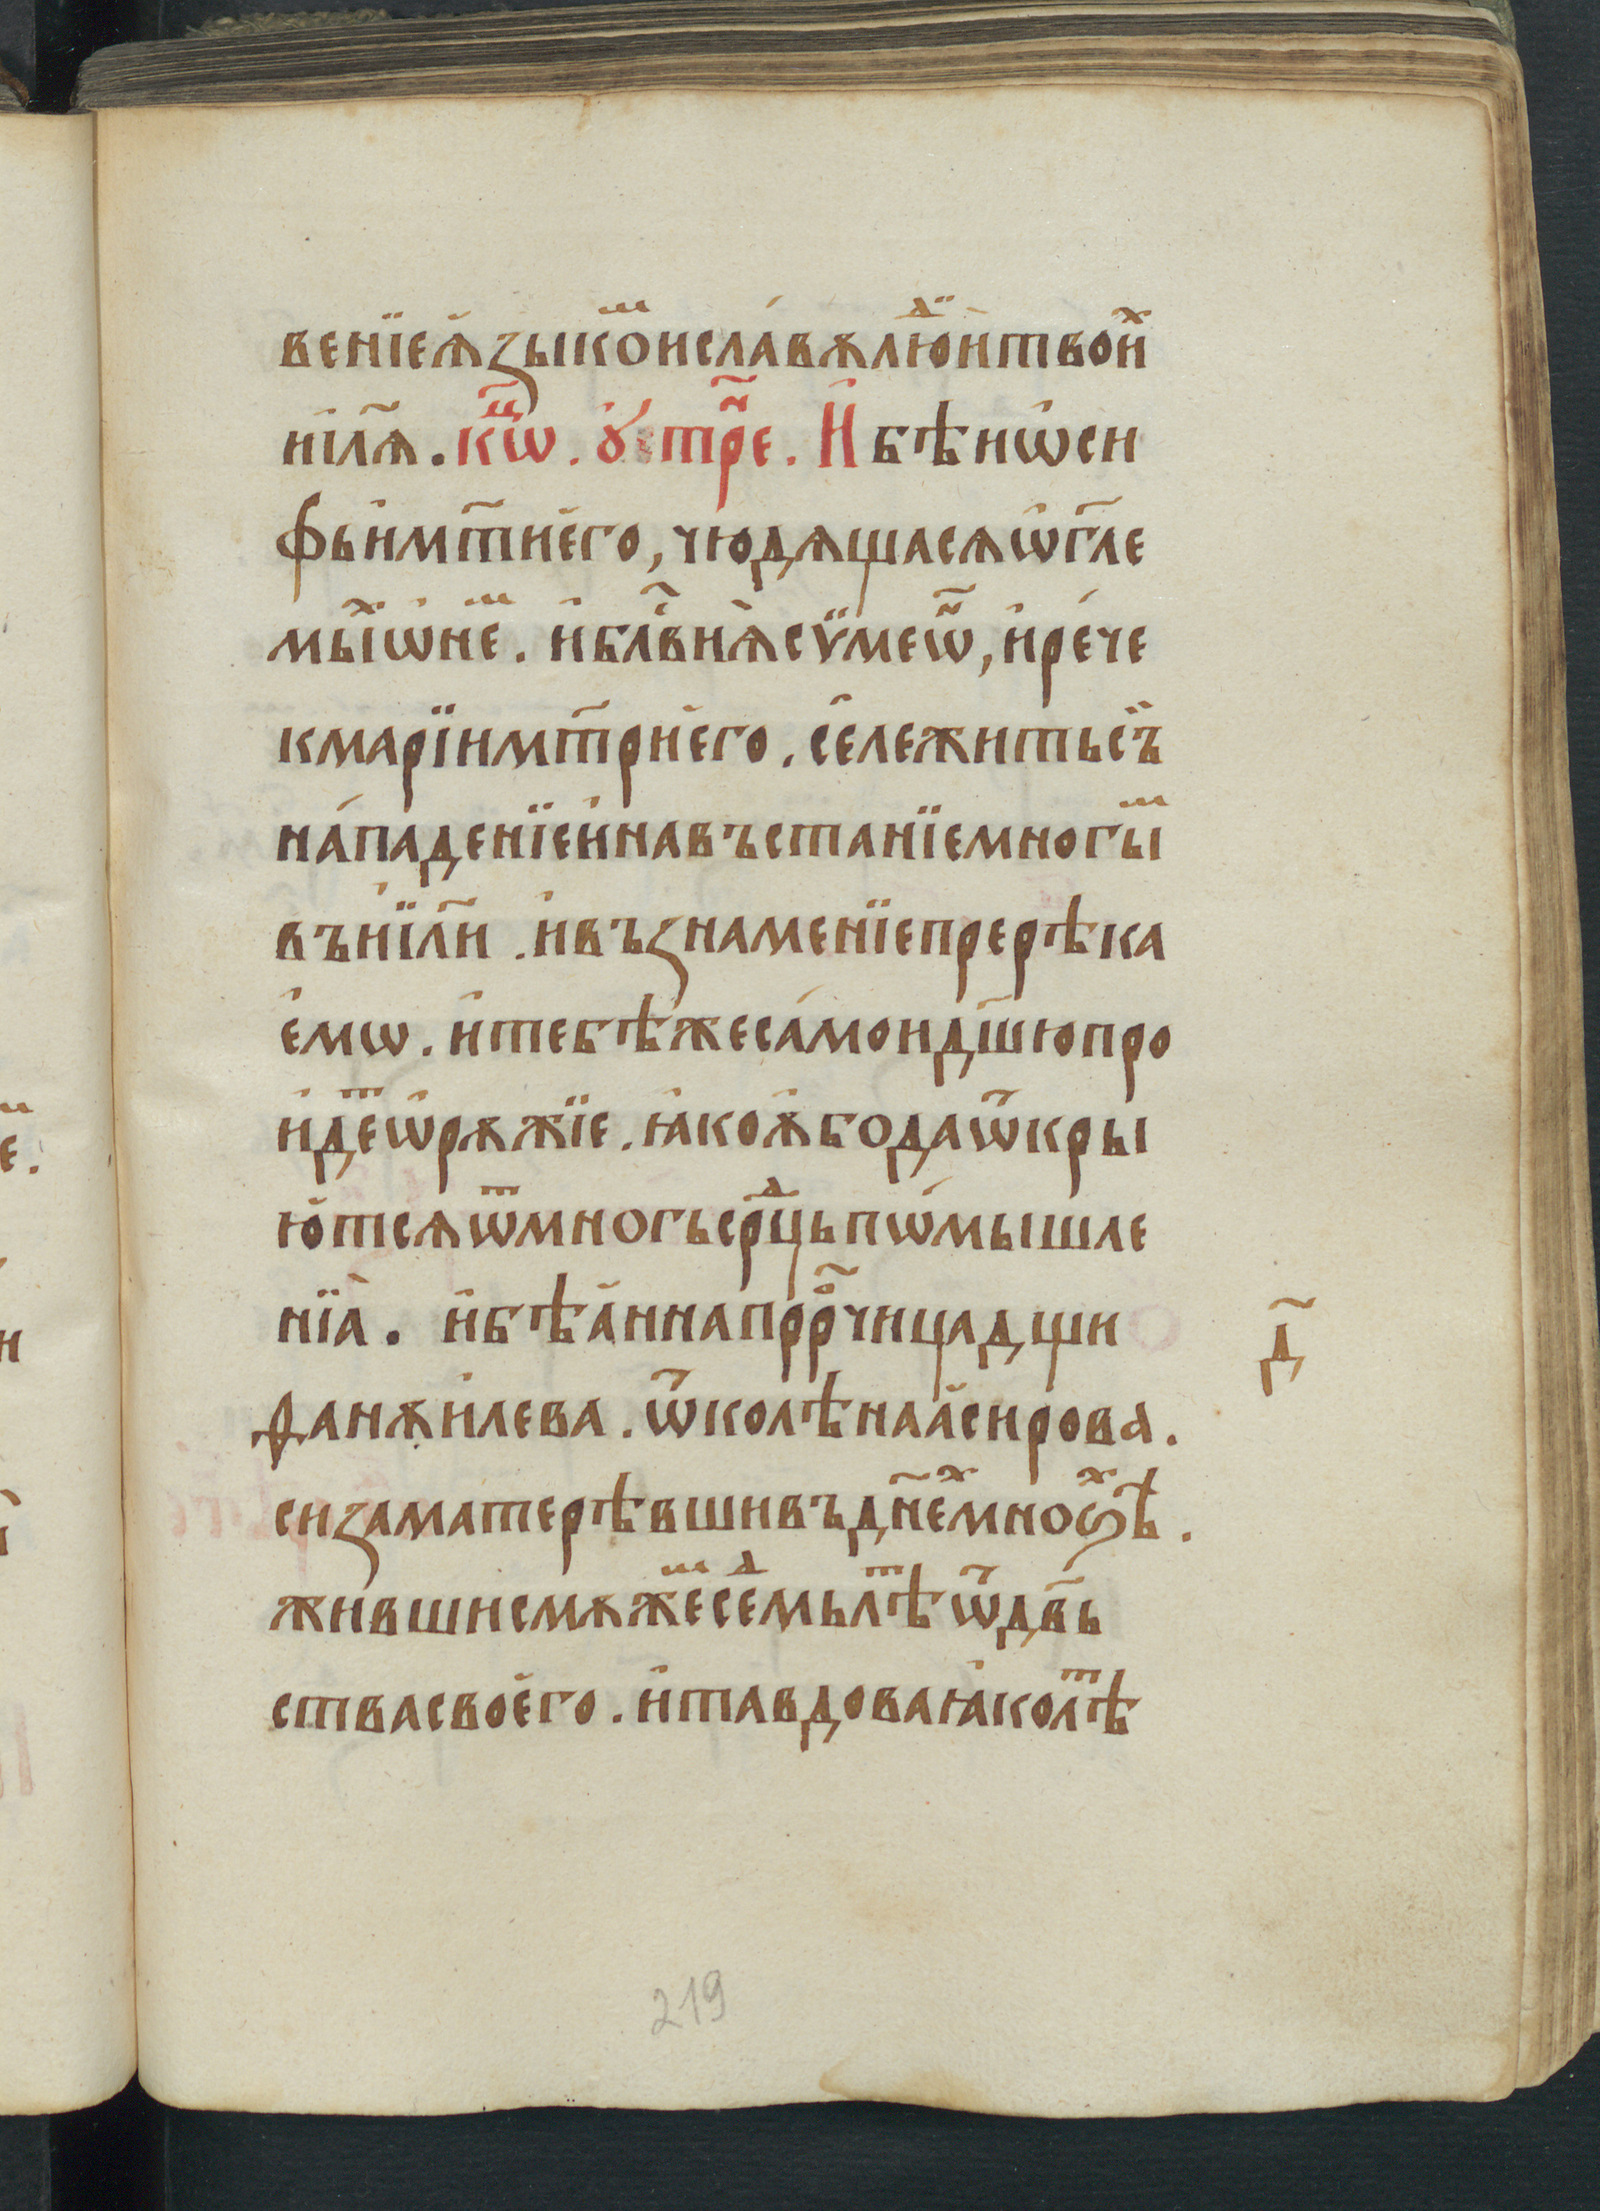 венїеѧ҆зыкоⷨ҇исла́вѧлюⷣ҇и҆твоиⷯ҇
ні҆л҃ѧ. кⷩ҇ѡ. ꙋ҆ тр҃е. И҆ бѣиѡ҆си
фьи҆мт҃ие҆го, чюдѧщасѧѡ҆гл҃е
мыⷯ҇ѡ҆неⷨ҇. и҆бл҃виѧ҆сѵ̈меѡⷩ҇, и҆ре́че
кмарїимт҃рие҆го. се҆лежитьсъ҆
на́паденїеи҆навъстанїемногы҆ⷨ
въиі҆л҃и. и҆възнаменїепрерѣка
е҆мѡ. и҆тебѣжеса́моидш҃юпро
и҆деⷮ҇ѡ҆рѫжїе. ꙗ҆коѧ҆бодаѿкры
ю҆тсѧѿмногьсрⷣ҇цьпѡ́мышле
нїа҆. и҆бѣа҆ннапрⷪ҇рчицадщи
Данѫи҆лева. ѿколѣнаа҆сирова.
сизаматерѣвшивъдн҃еⷯ҇мноѕѣⷯ҇.
жившисмѫжеⷨ҇сеⷣ҇мьлⷮ҇ѣ ѿдв҃ь
ствасвоего. и҆тавдоваꙗ҆колⷮ҇ѣ
д҃
219